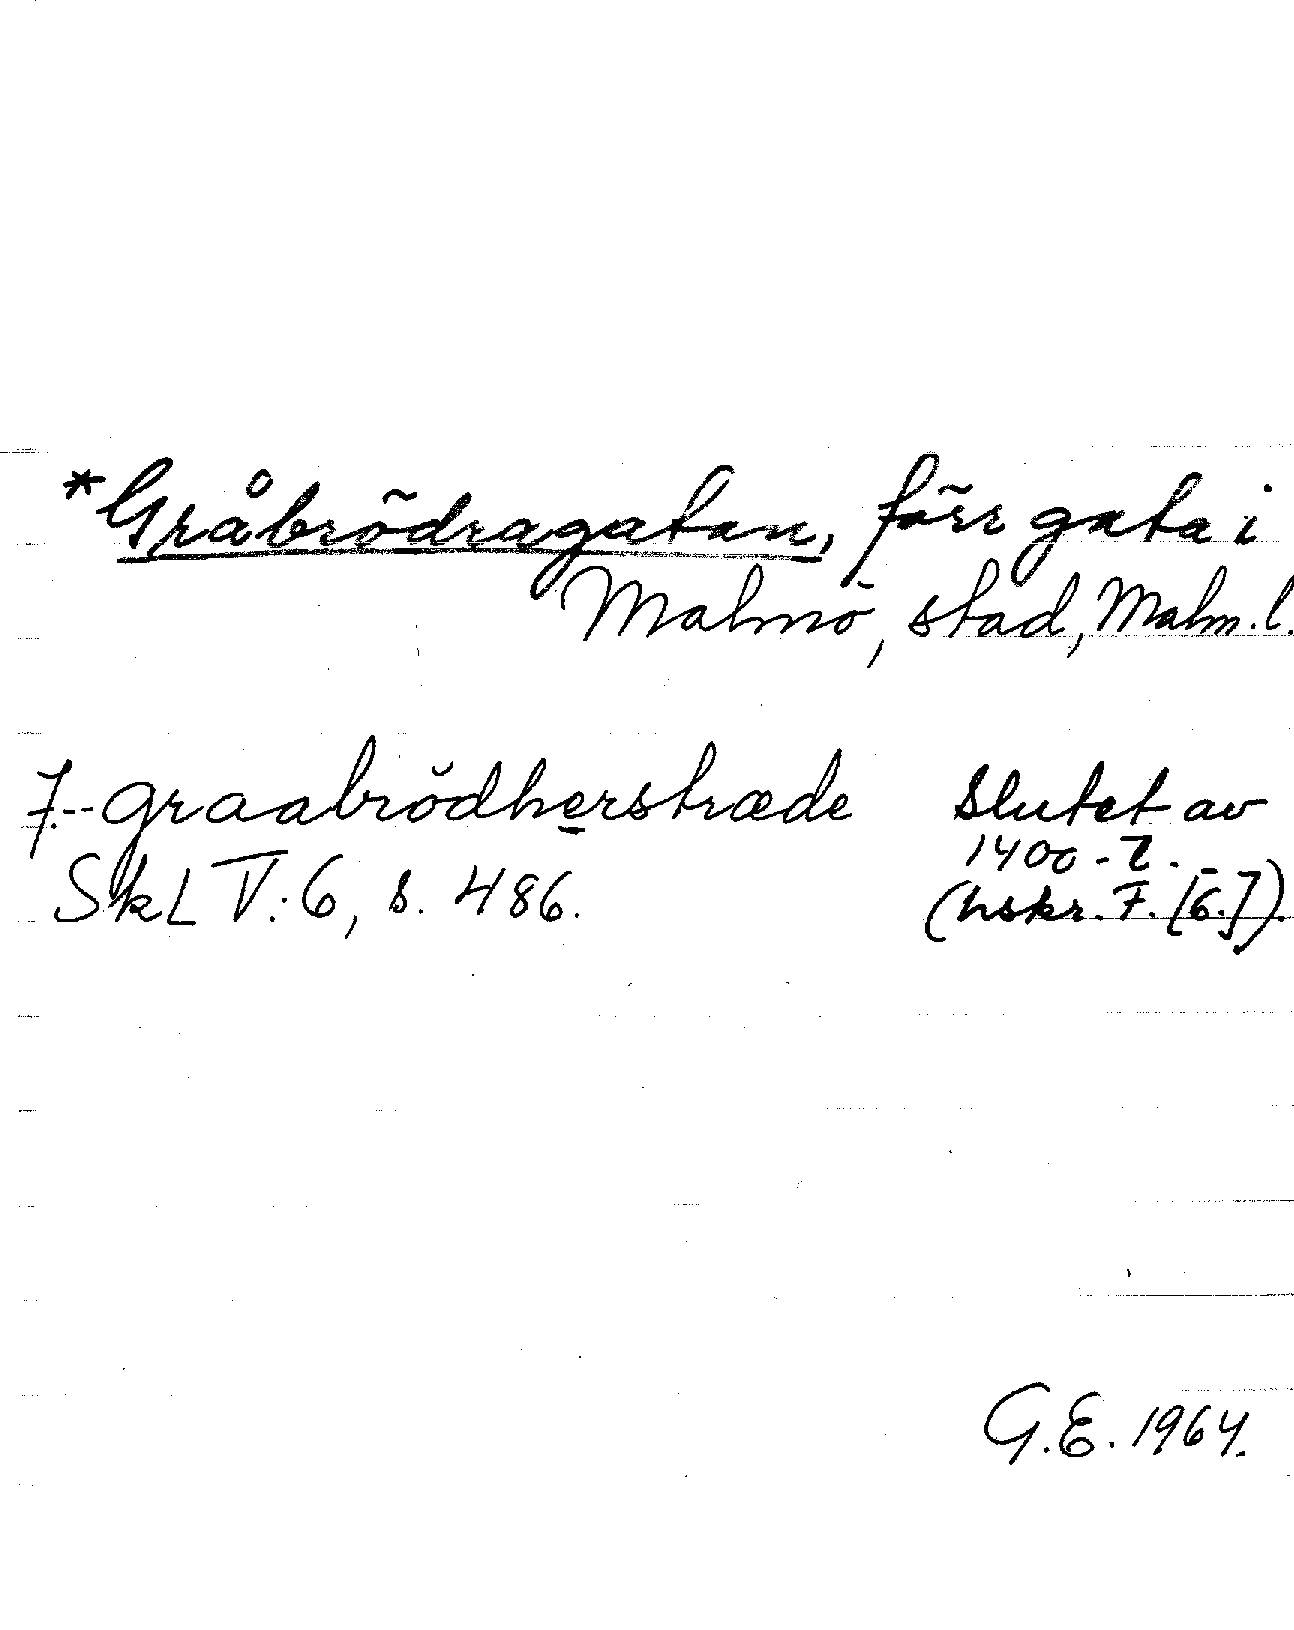 *Gråbrödragatan, förr gata i
Malmö, stad, Malm. l.
J.-- graabrödherstræde Slutet av
1400-t.
SkL V:6, s. 486. (hskr. F. [6.]).
G.E. 1964.